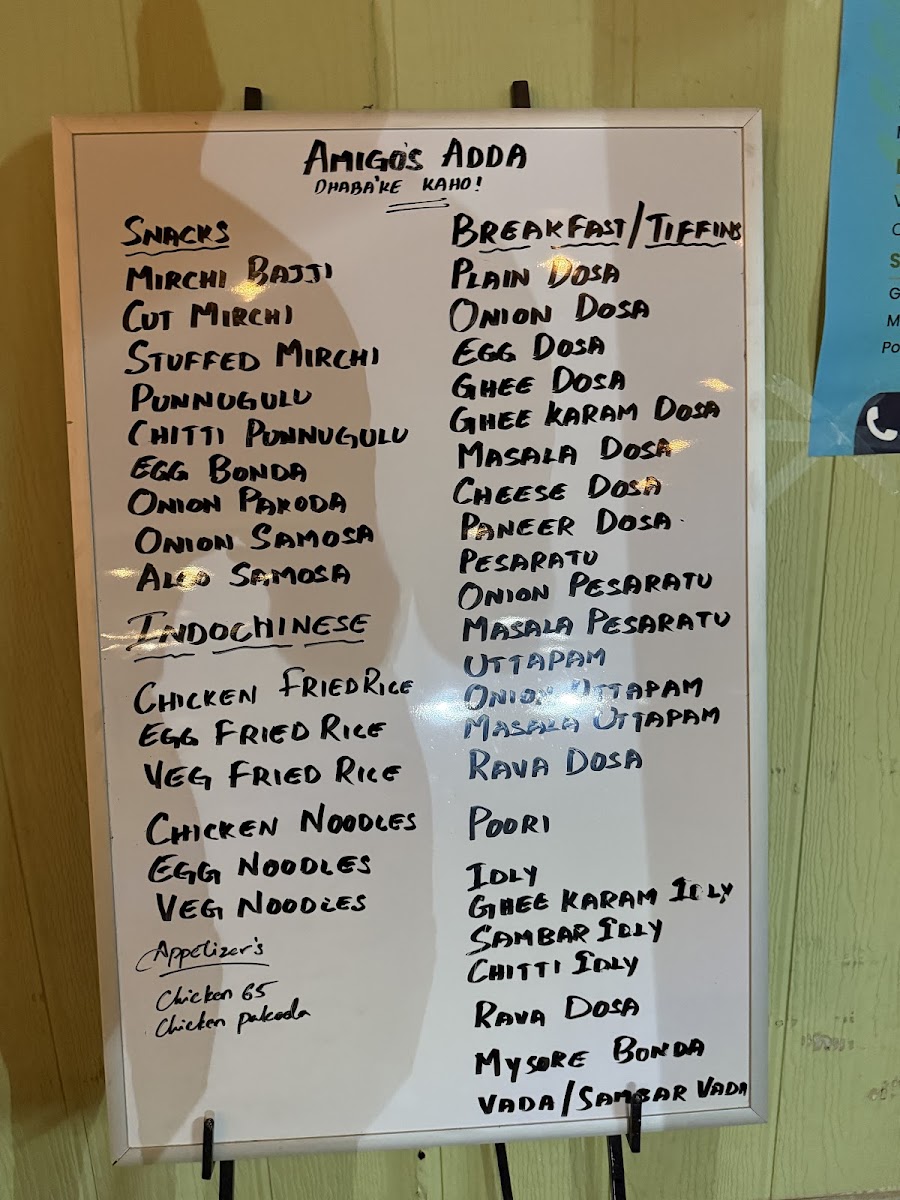 AMIGO'S ADDA
DHABA'KE KAHO!
SNACKS
MIRCHI BAJJI
CUT MIRCHI
STUFFED MIRCHI
PUNNUGULU
CHITTI PUNNUGULU
EGG BONDA
ONION PAKODA
ONION SAMOSA
ALOO SAMOSA
INDOCHINESE
CHICKEN FRIED RICE
EGG FRIED RICE
VEG FRIED RICE
CHICKEN NOODLES
EGG NOODLES
VEG NOODLES
Appetizer's
Chicken 65
Chicken pakoda
BREAKFAST/TIFFINS
PLAIN DOSA
ONION DOSA
EGG DOSA
GHEE DOSA
GHEE KARAM DOSA
MASALA DOSA
CHEESE DOSA
PANEER DOSA
PESARATU
ONION PESARATU
MASALA PESARATU
UTTAPAM
ONION UTTAPAM
MASALA UTTAPAM
RAVA DOSA
POORI
IDLY
GHEE KARAM IDLY
SAMBAR IDLY
CHITTI IDLY
RAVA DOSA
MYSORE BONDA
VADA/SAMBAR VADA